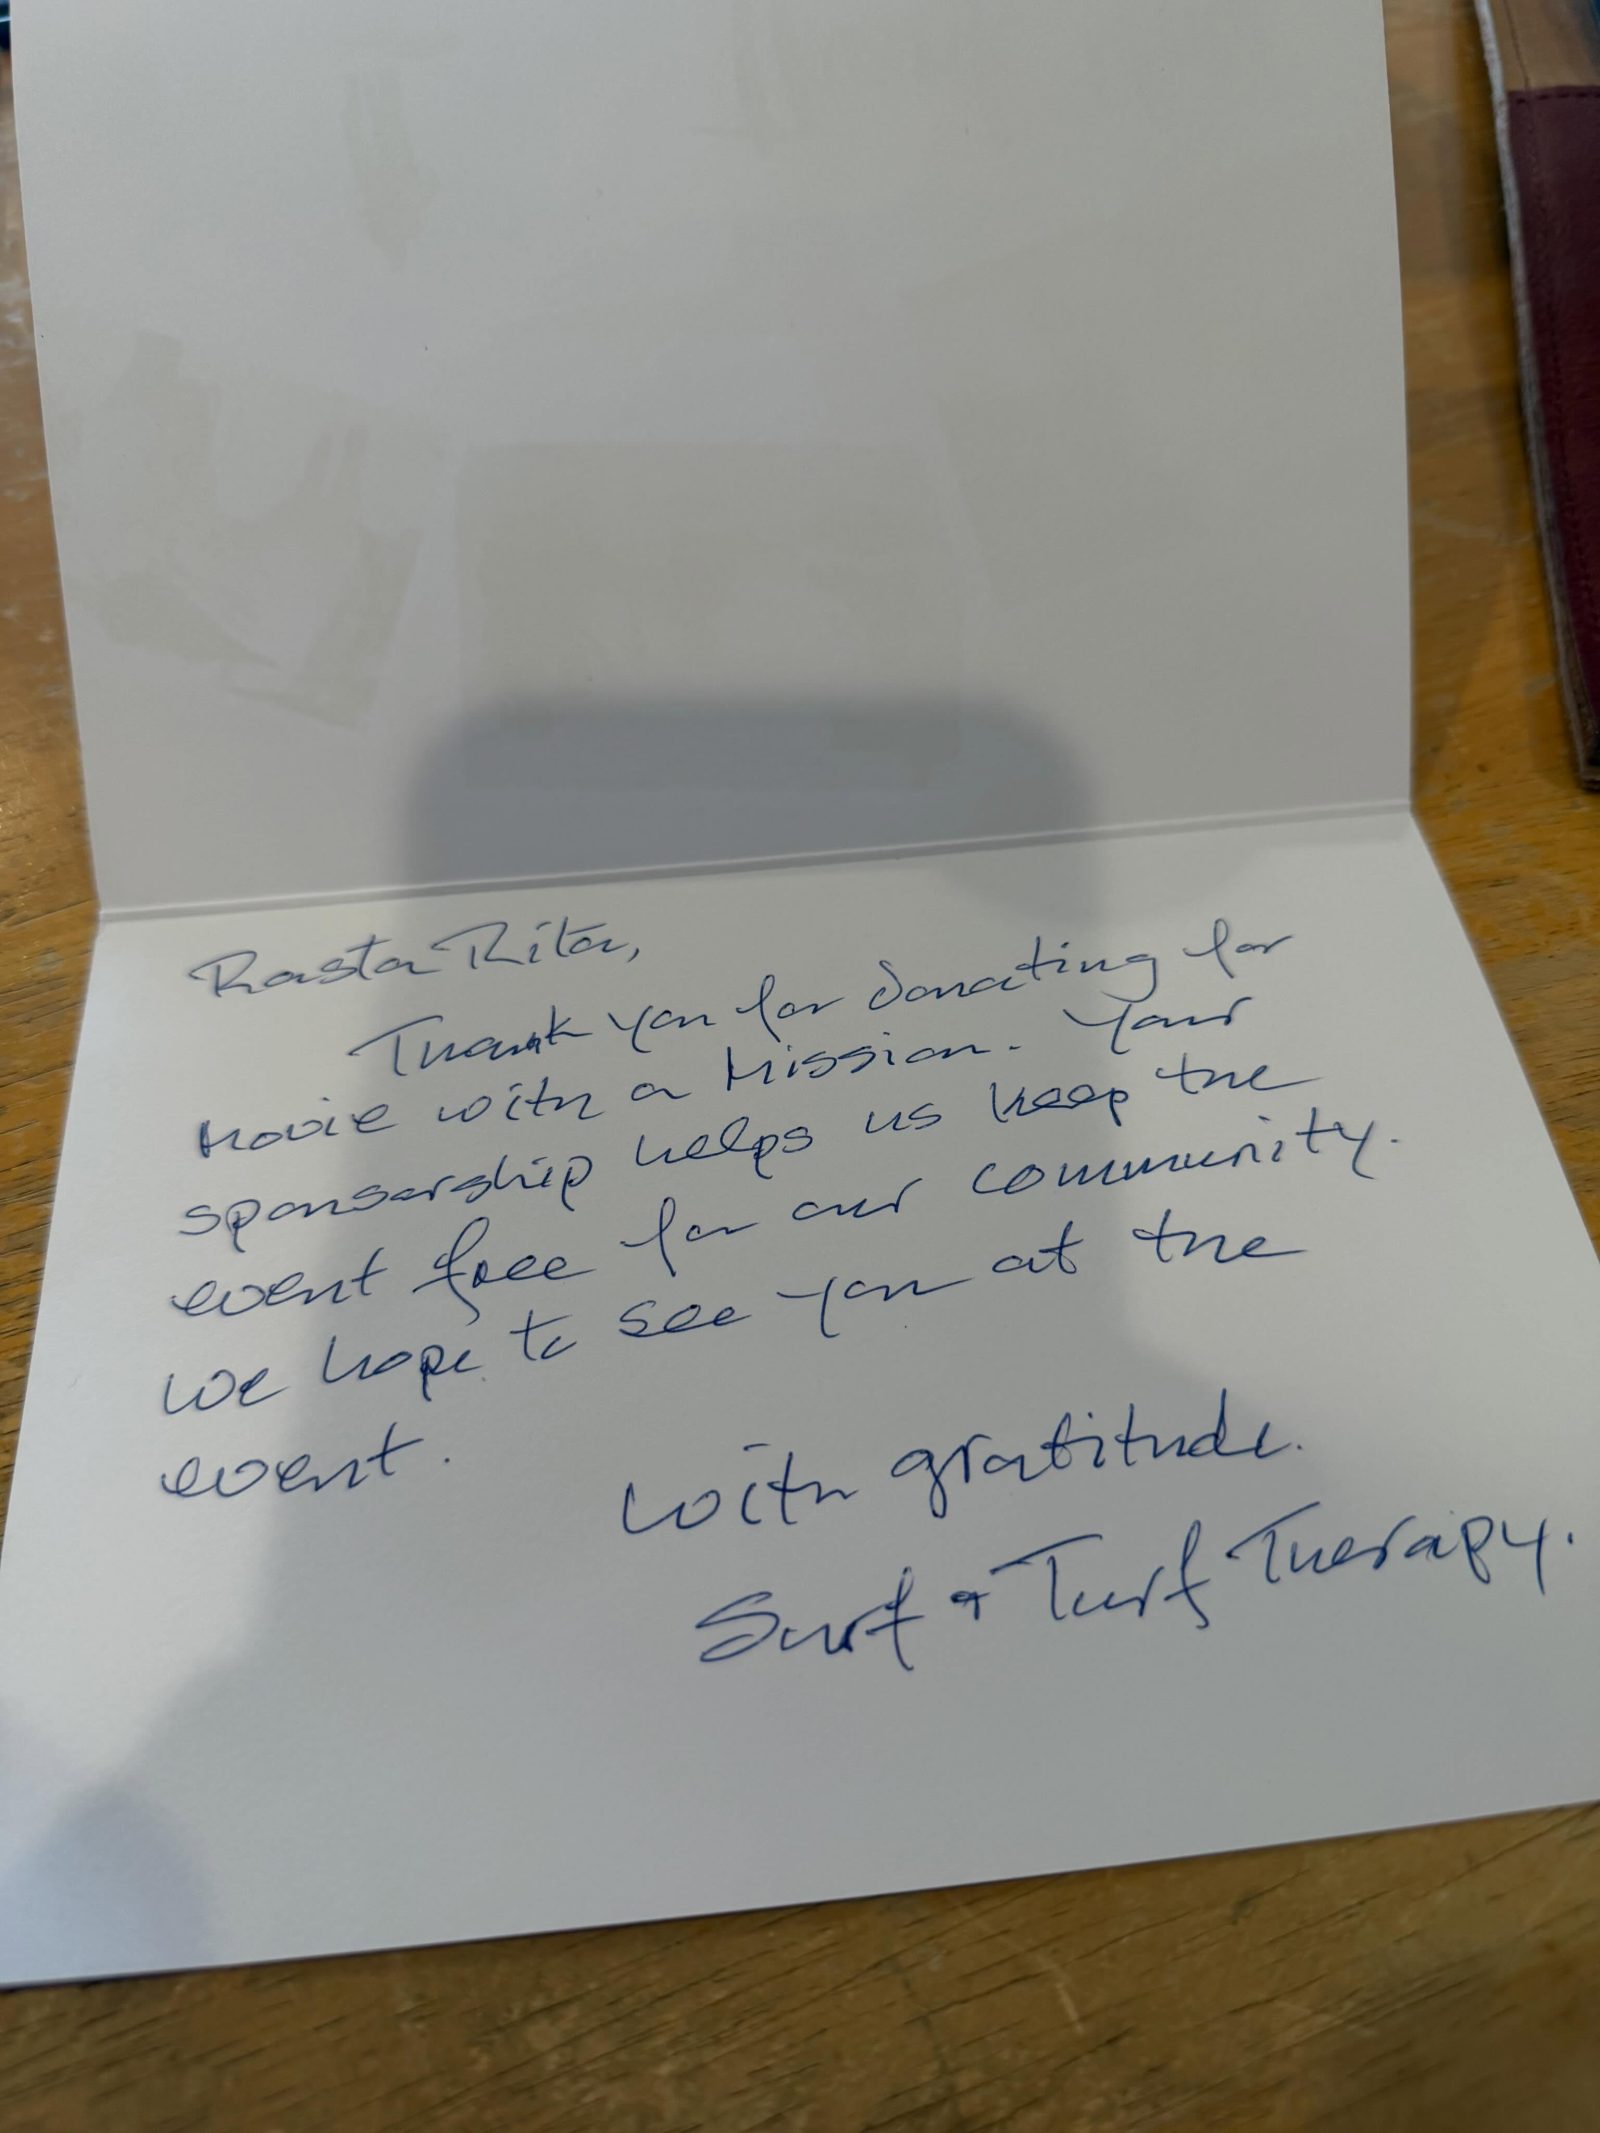 Rasta Rita,
Thank you for donating for
Movie with a Mission. Your
sponsorship helps us keep the
event free for our community.
We hope to see you at the
event.
with gratitude.
Surf & Turf Therapy.